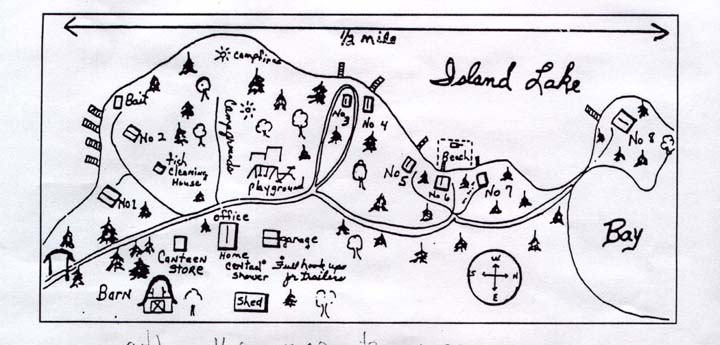 1/2 mile
Island Lake
Campfires
Bait
No 2
Fish
Cleaning
House
Campgrounds
Playground
No 3
No 4
No
5
Beach
No 6
No 7
No 8
No 1
Bay
Office
Home
Central
Shower
Canteen
Store
Garage
Full hook ups
for trailers
Barn
Shed
W
S
N
E